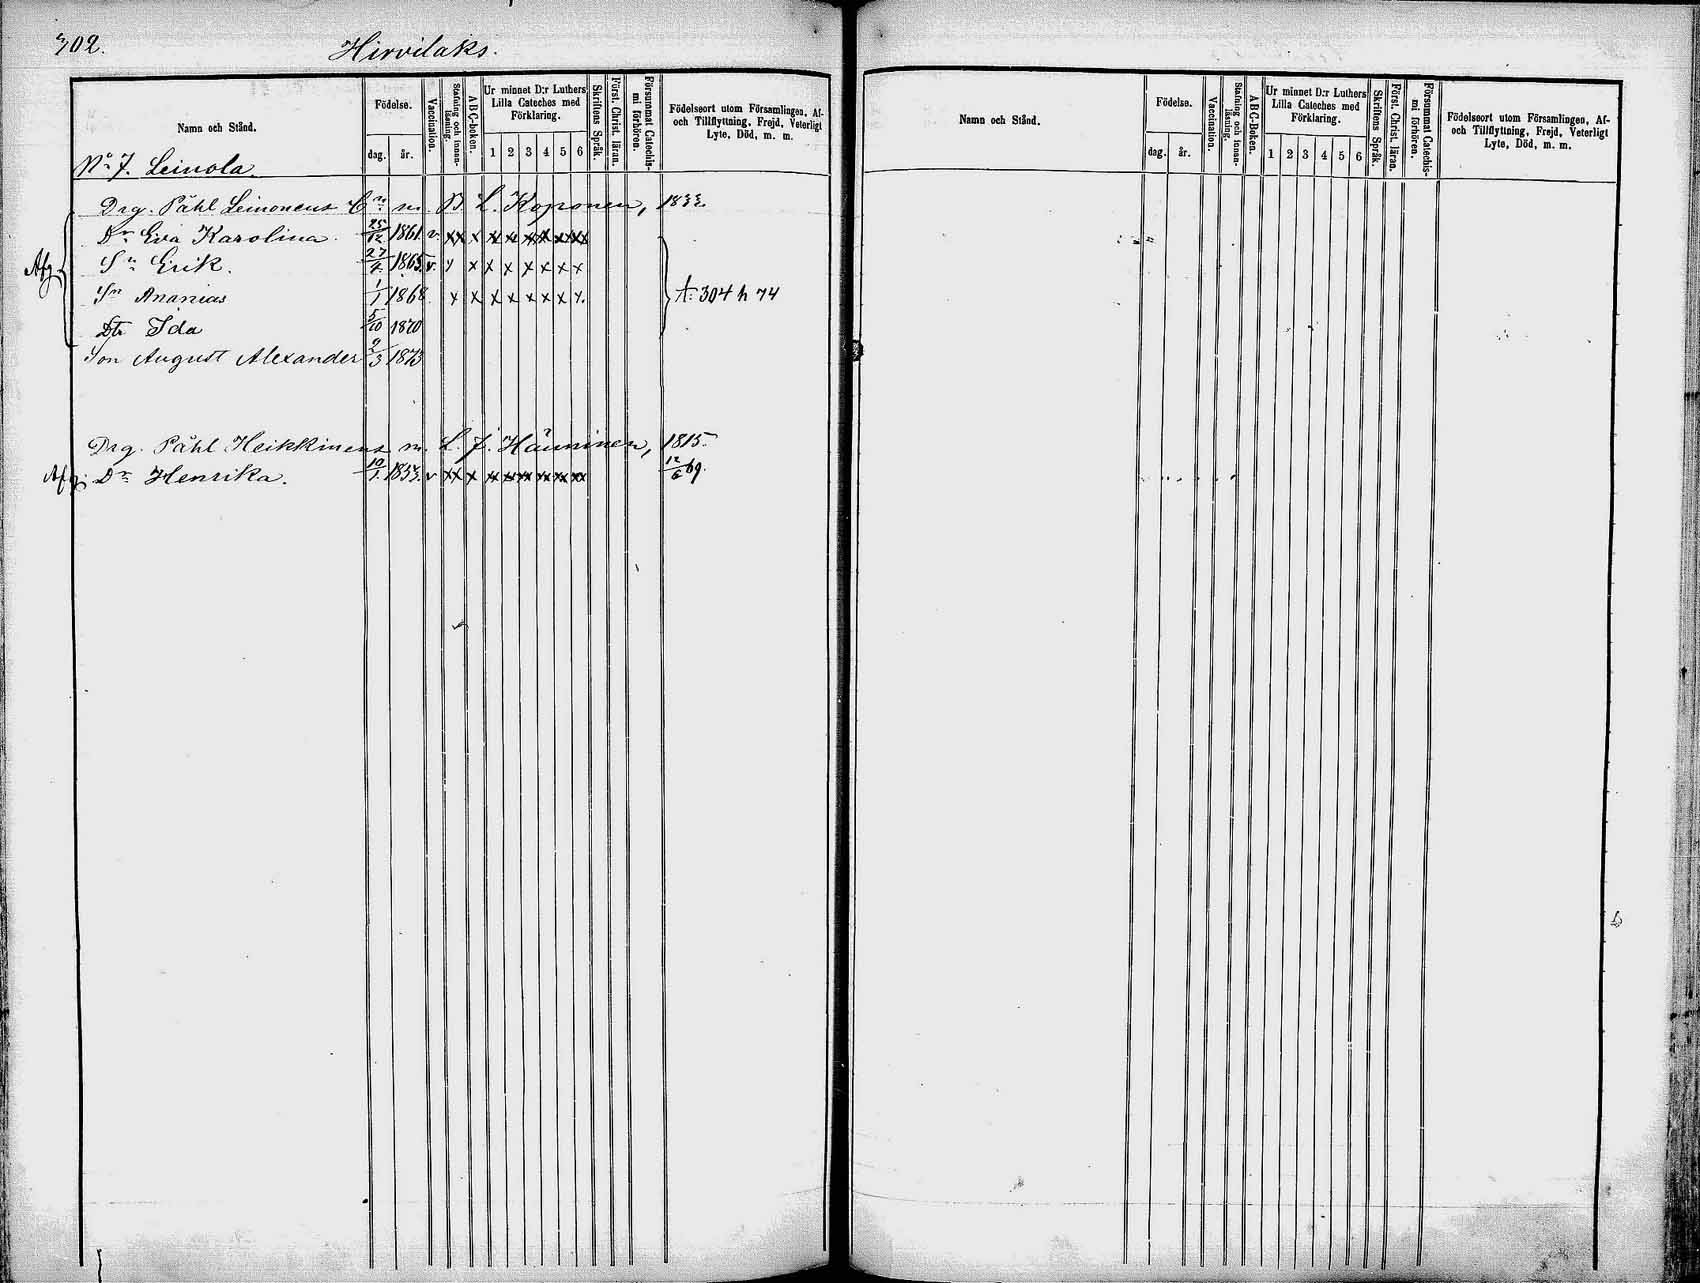 302.
Hirvilaks.
Namn och Stånd.
Födelse.
dag. år.
Vaccination.
Stafning och innan-läsning.
ABC-boken.
Ur minnet D:r Luthers Lilla Cateches med Förklaring.
1 2 3 4 5 6
Skriftens Språk.
Först. Christ. läran.
Försummat Catechis-mi förhören.
Födelseort utom Församlingen, Af- och Tillflyttning, Frejd, Veterligt Lyte, Död, m. m.
No 7. Leinola.
Drg. Påhl Leinonens m. B L. Koponen, 1833.
Dr Eva Karolina. 25/12 1861. v. xx x x x x x x x
Sn Erik. 27/4 1865. v. x x x x x x x x
Sn Ananias 1/1 1868 x x x x x x x x.
Dtr Ida 5/10 1870
Afg.
A: 304 h 74
Son August Alexander 9/3 1873
Drg. Påhl Heikkinens m. L. J. Hänninen, 1815.
Afg. Dr Henrika. 10/1. 1853. v xx x x x x x x x 12/6 69.
Namn och Stånd.
Födelse.
dag. år.
Vaccination.
Stafning och innan-läsning.
ABC-Boken.
Ur minnet D:r Luthers Lilla Cateches med Förklaring.
1 2 3 4 5 6
Skriftens Språk.
Först. Christ. läran.
Försummat Catechis-mi förhören.
Födelseort utom Församlingen, Af- och Tillflyttning, Frejd, Veterligt Lyte, Död, m. m.